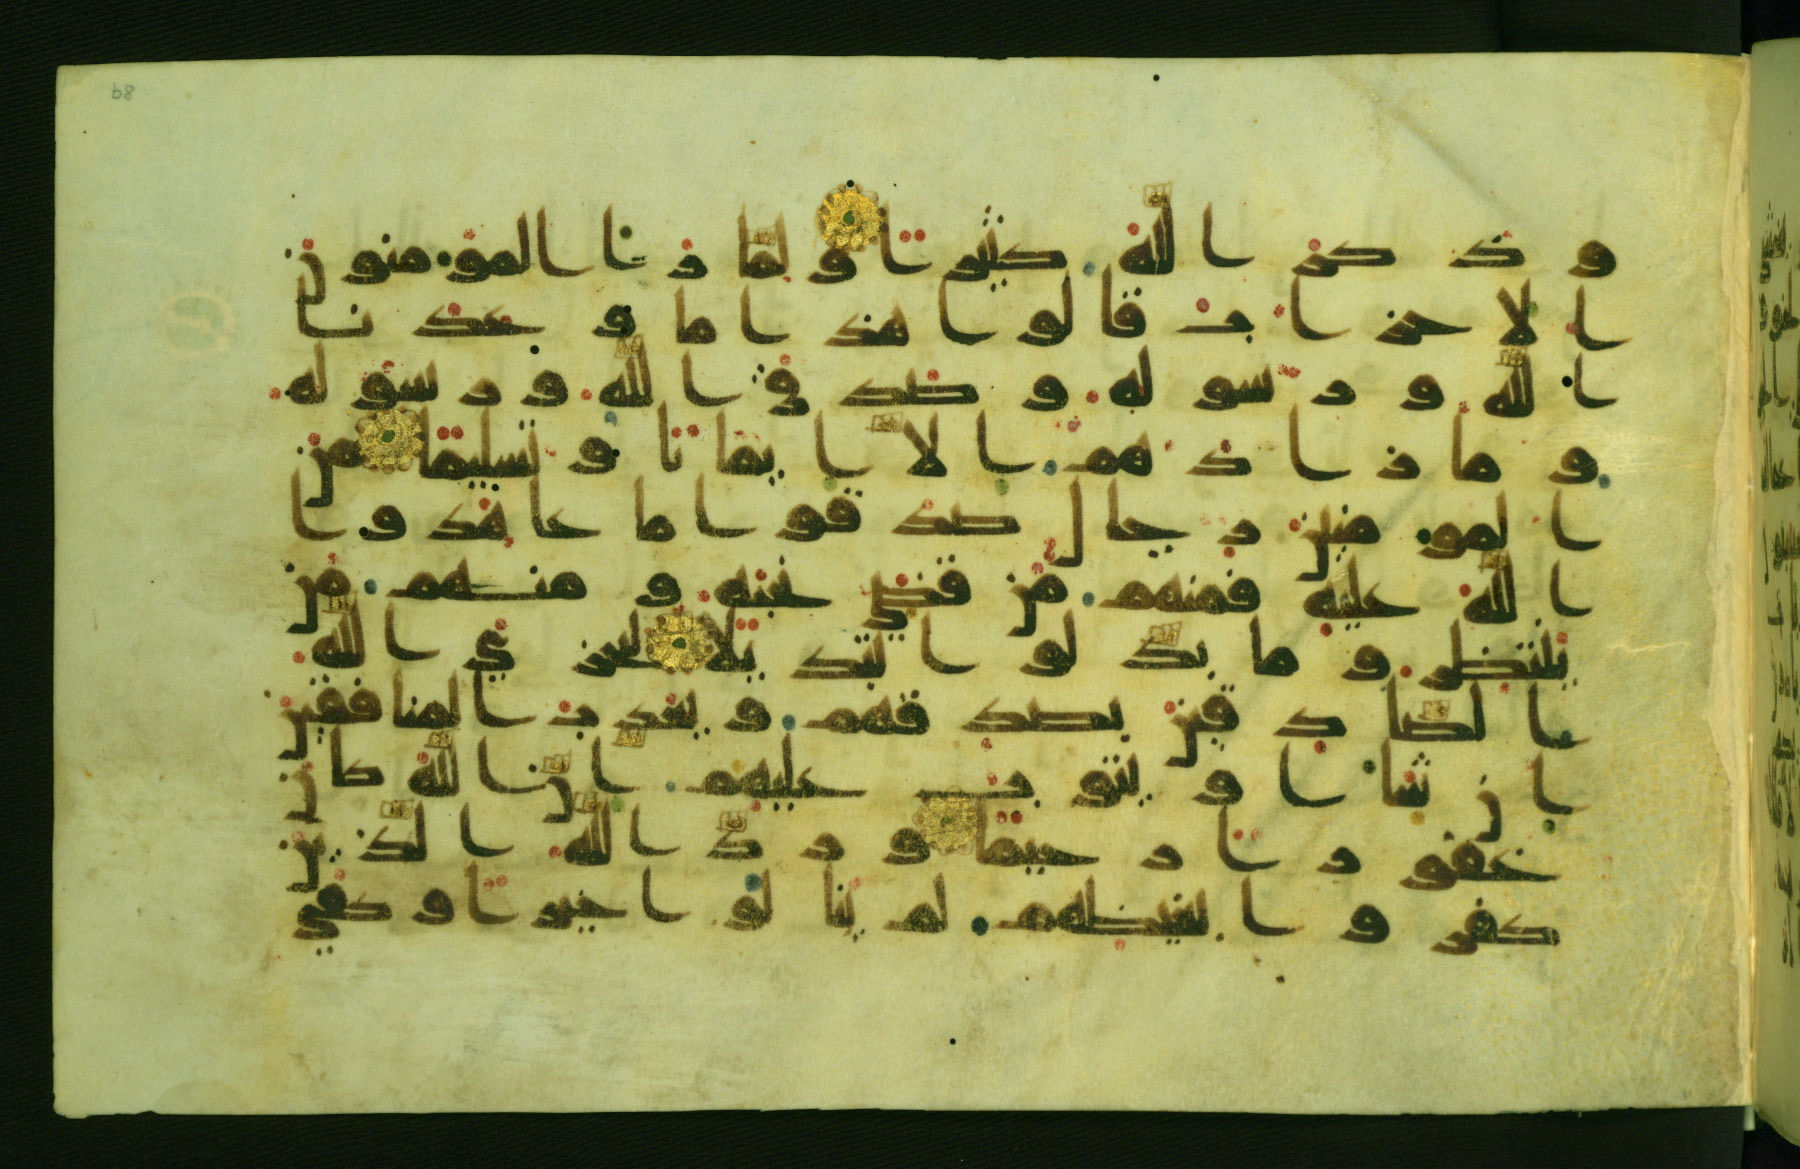 68
وذكر الله كثيرا ولما را المومنون
الاحزاب قالوا هذا ما وعدنا
الله ورسوله وصدق الله ورسوله
وما زادهم الا ايمانا وتسليما من
المومنين رجال صدقوا ما عاهدوا
الله عليه فمنهم من قضى نحبه ومنهم من
ينتظر وما بدلوا تبديلا ليجزي الله
الصادقين بصدقهم ويعذب المنافقين
ان شا او يتوب عليهم ان الله كان
غفورا رحيما ورد الله الذين
كفروا بغيظهم لم ينالوا خيرا وكفى